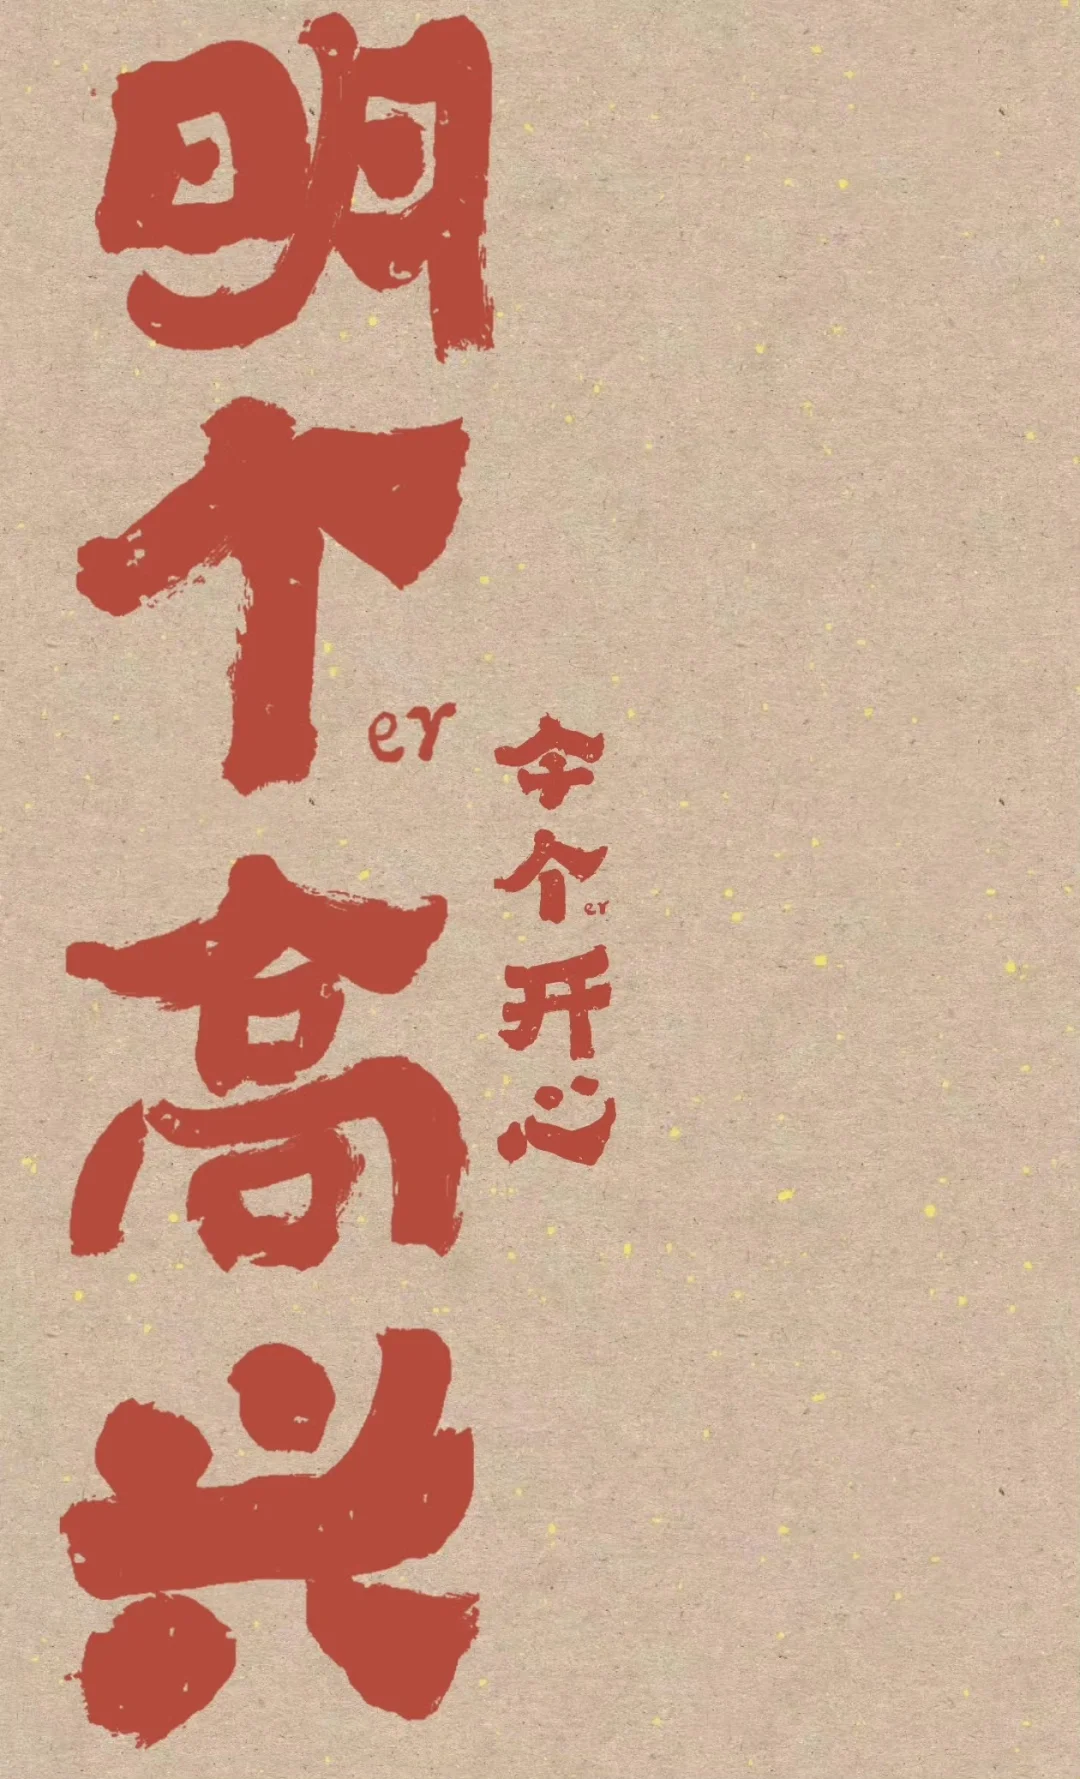 明个er高兴
今个er开心